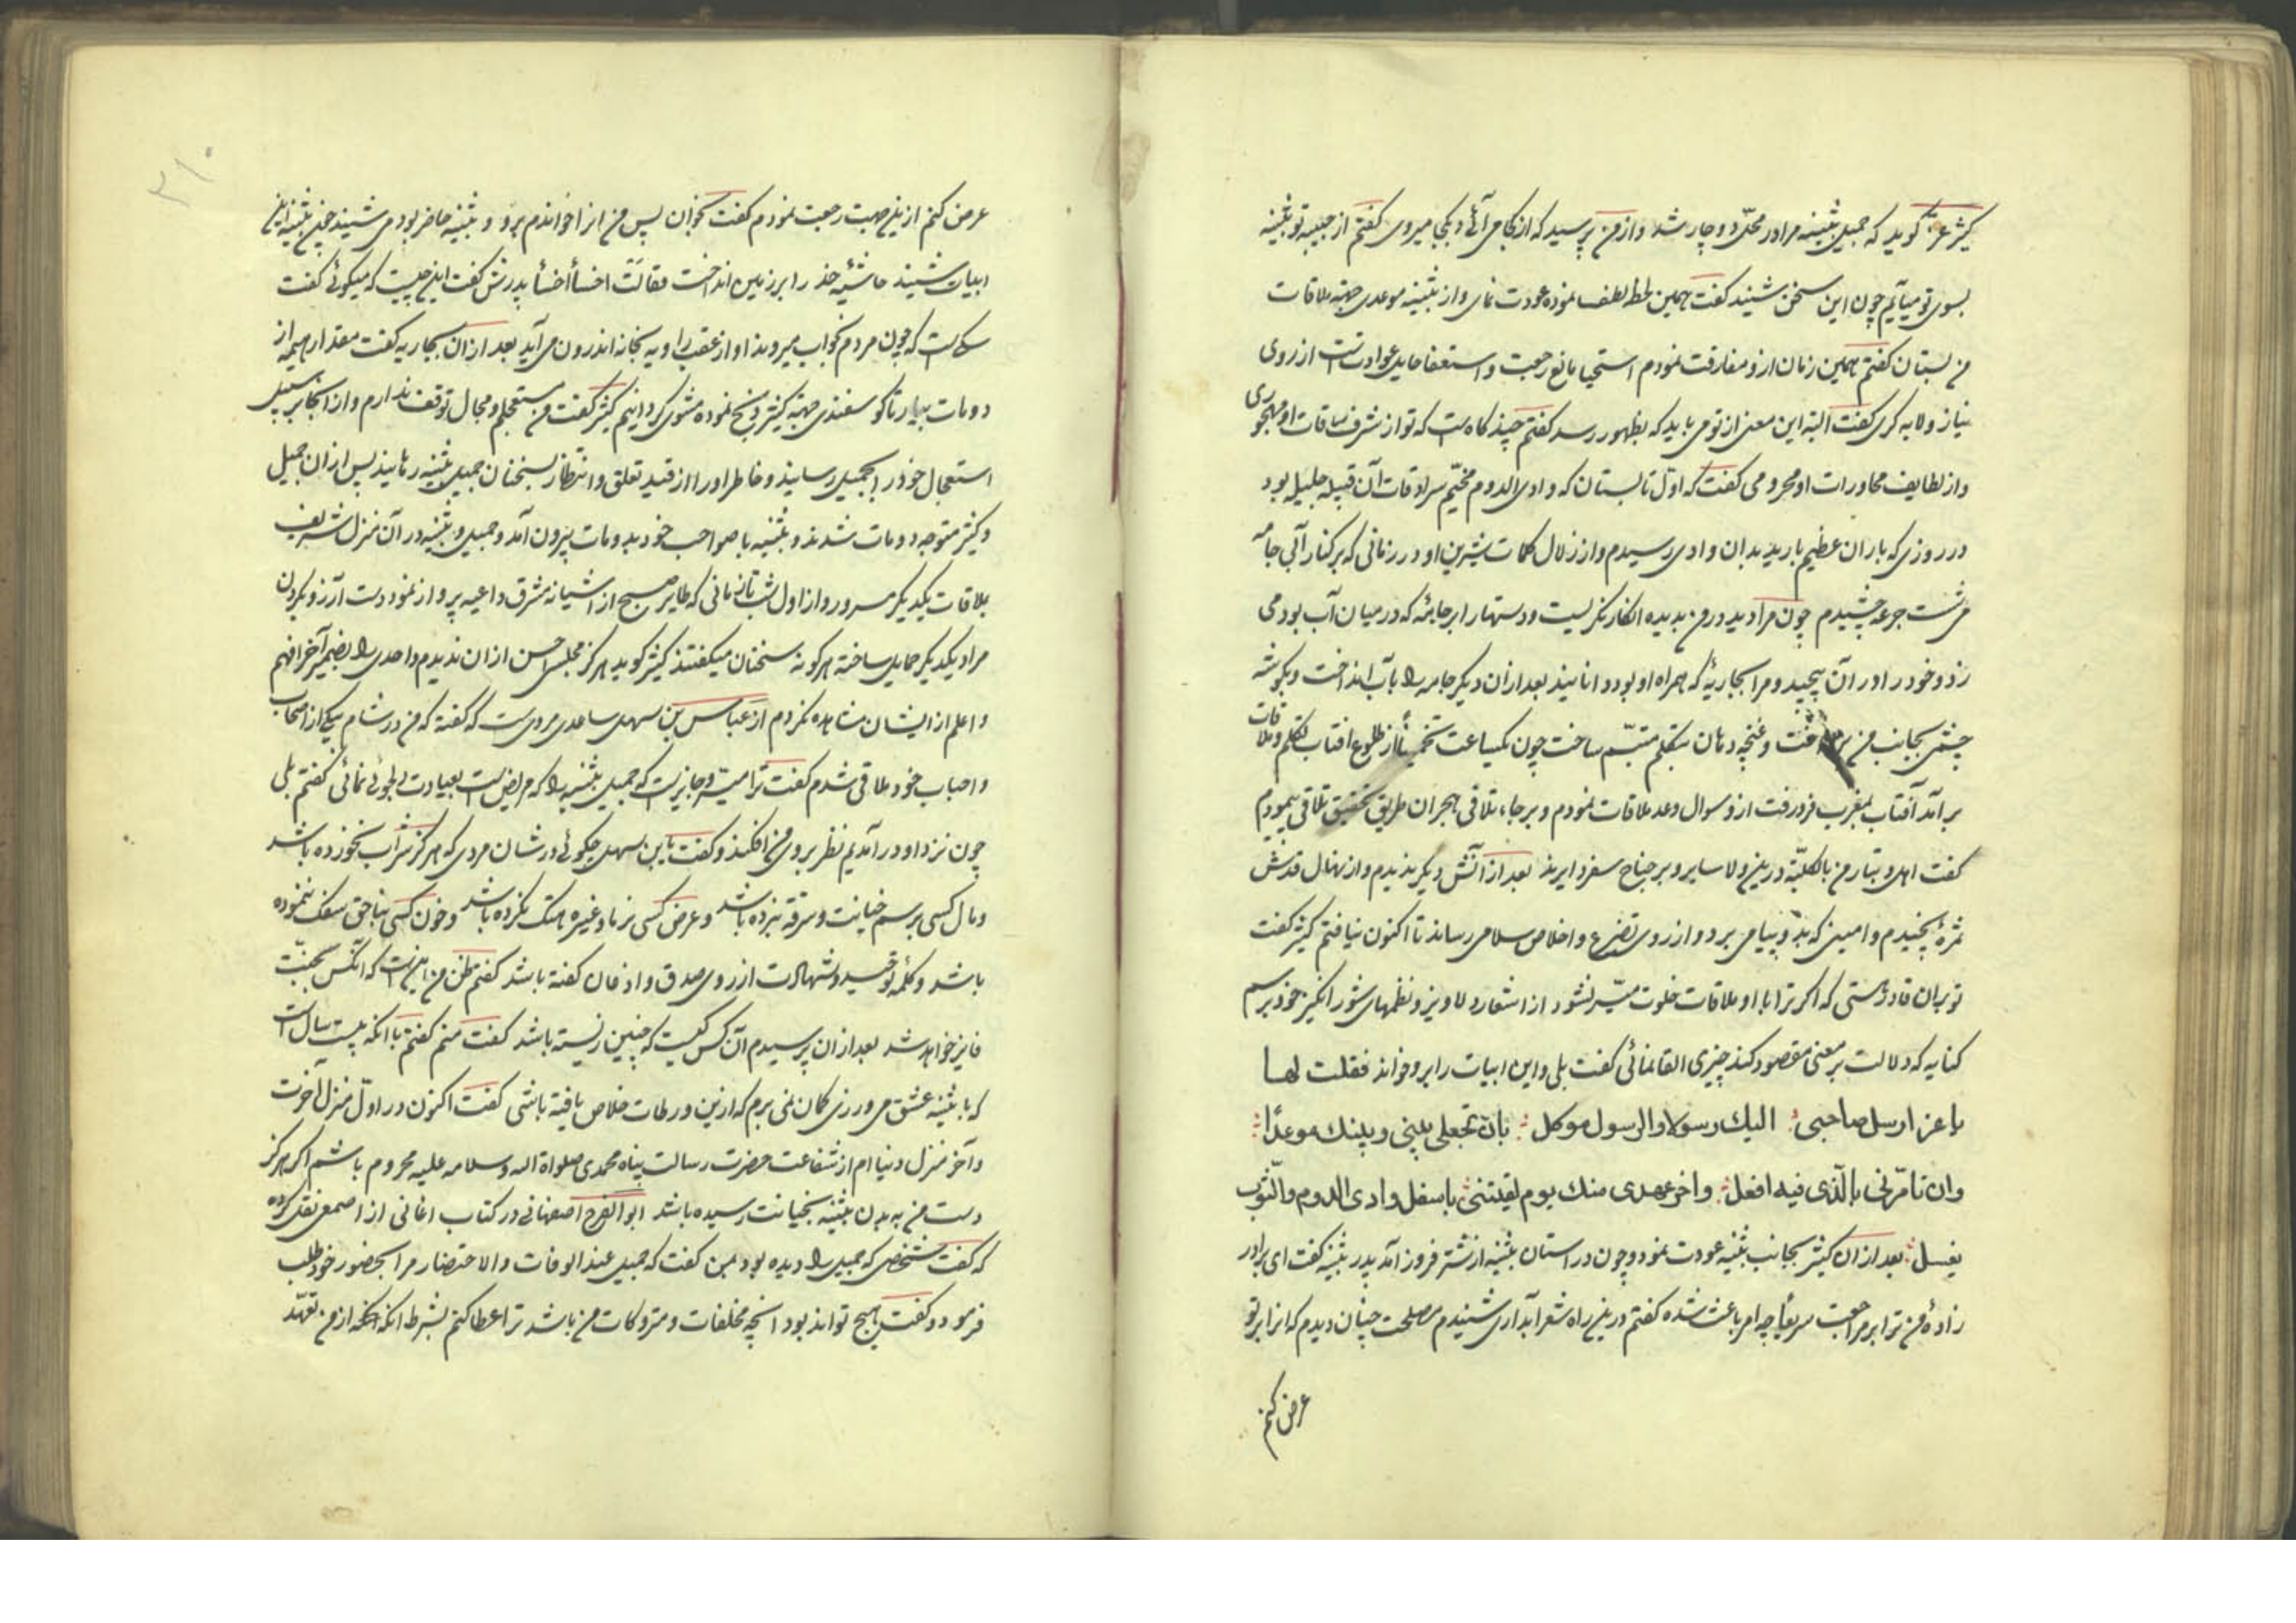 کثیر عزّه گوید که جمیل بثینه مرا در محلّی دوچار شد و از من پرسید که از کجا می آئی و بکجا میروی گفتم از حبیبه تو بثینه
بسوی تو میآیم چون این سخن شنید گفت همین لحظه لطف نموده عودت نمای و از بثینه موعدی جهته ملاقات
من بستان گفتم همین زمان ازو مفارقت نمودم استحیا مانع رجعت و استعفا عوادتست از روی
نیاز و لابه گری گفت البته این معنی از تو می باید که بظهور رسد گفتم چند گاهست که تو از شرف ملاقات او مهجوری
و از لطایف محاورات او محرومی گفت که اوّل تابستان که وادی الدوم مخیّم سرادقات آن قبیله جلیله بود
در روزی که باران عظیم بارید بدان وادی رسیدم و از زلال کلمات شیرین او در زمانی که بر کنار آبی جامه
می شست جرعه چشیدم چون مرا دید در من بدیده انکار نگریست و دستها را بر جامه که در میان آب بود می
زد و خود را در آن پیچید و مرا بجاریه که همراه او بود دانانید بعد از آن دیگر جامه را بآب انداخت و بگوشه
چشمی بجانب من و غنچه دهان بتکلم متبسّم ساخت چون یکساعت تخمیناً از طلوع افتاب تکلم و ملاقات
برآمد آفتاب بمغرب فرو رفت ازو سوال وعد ملاقات نمودم و برجاء تلاقی هجران طریق تحقیق تلاقی پیمودم
گفت اهل و تبار من بالکلیّه درین ولا سایر و بر جناح سفر دایرند بعد از آنش دیگر ندیدم و از نهال قدش
ثمرهٔ نچیدم و امینی که بدو پیامی برد و از روی تضرع و اخلاص سلامی رساند تا اکنون نیافتم کثیر گفت
تو بران قادر هستی که اگر ترا با او ملاقات خلوت میسّر نشود از اشعار دلاویز و نظمهای شورانگیز خود برسم
کنایه که دلالت بر معنی مقصود کند چیزی القا نمائی گفت بلی و این ابیات را برو خواند فقلت لها
یا عز ارسل صاحبی الیك رسولا والرسول موکل بان تجعلی بینی وبینك موعداً
وان تامرنی بالّذی فیه افعل واخر عهدی منك یوم لقیتنی باسفل وادی الدوم والثّوب
یغسل بعد از آن کثیر بجانب بثینه عودت نمود و چون در استان بثینه از شتر فرود آمد پدر بثینه گفت ای برادر
زادهٔ من ترا بر مراجعت سریعاً چه امر باعث شده گفتم درین راه شعر آبداری شنیدم مصلحت چنان دیدم که انرا بر تو
عرض کنم
۳۱۰
عرض کنم ازین جهت رجعت نمودم گفت بخوان پس من انرا خواندم برو و بثینه حاضر بود می شنید چون بثینه این
ابیات شنید حاشیه خدر را بر زمین انداخت فقالت اخسأ اخسأ پدرش گفت این چیست که میگوئی گفت
سگیست که چون مردم بخواب میروند او از عقب راویه بخانه اندرون می آید بعد از آن بجاریه گفت مقدار هیمه از
دومات بیار تا گوسفندی جهته کثیر ذبح نموده مشوی گردانیم کثیر گفت من مستعجلم و مجال توقف ندارم و از انجا بر سبیل
استعجال خود را بجمیل رسانید و خاطر او را از قید تعلق و انتظار بسخنان جمیل بثینه رهانید پس از آن جمیل
و کثیر متوجه دومات شدند و بثینه با صواحب خود بدومات بیرون آمد و جمیل و بثینه در آن منزل شریف
بملاقات یکدیگر مسرور و از اول شب تا زمانی که طایر صبح از اشیانه مشرق داعیه پرواز نمود دست آرزو بگردن
مراد یکدیگر حمایل ساخته هر گونه سخنان میگفتند کثیر گوید هرگز مجلس احسن از ان ندیدم و احدی را بضمیر آخر افهم
و اعلم از ایشان مشاهده نکردم از عباس بن سهل ساعدی مرویست که گفته که من در شام بیکی از اصحاب
و احباب خود ملاقی شدم گفت ترا میسّر و جایز است که جمیل بثینه را که مریض است بعیادت دلجوئی نمائی گفتم بلی
چون نزد او درآمدیم نظر بروی من افکند و گفت یا بن سهل چگوئی در شان مردی که هرگز شراب نخورده باشد
و مال کسی برسم خیانت و سرقه نبرده باشد و عرض کسی بزنا و غیره هتک نکرده باشد و خون کسی بناحق سفک ننموده
باشد و کلمه توحید و شهادت از روی صدق و اذعان گفته باشد گفتم ظن من اینست که آنکس بجنّت
فایز خواهد شد بعد از ان پرسیدم آن کس کیست که چنین زیسته باشد گفت منم گفتم با انکه بیست سال است
که با بثینه عشق می ورزی گمان نمی برم که ازین ورطات خلاص یافته باشی گفت اکنون در اوّل منزل آخرت
و آخر منزل دنیا ام از شفاعت حضرت رسالت پناه محمدی صلواة الله و سلامه علیه محروم باشم اگر هرگز
دست من به بدن بثینه بخیانت رسیده باشد ابو الفرج اصفهانی در کتاب اغانی از اصمعی نقل کرده
که گفت شخصی که جمیل را دیده بود بمن گفت که جمیل عند الوفات والاحتضار مرا بحضور خود طلب
فرمود و گفت هیچ تواند بود انچه مخلفات و متروکات من باشد ترا عطا کنم بشرط انکه از من تعهّد